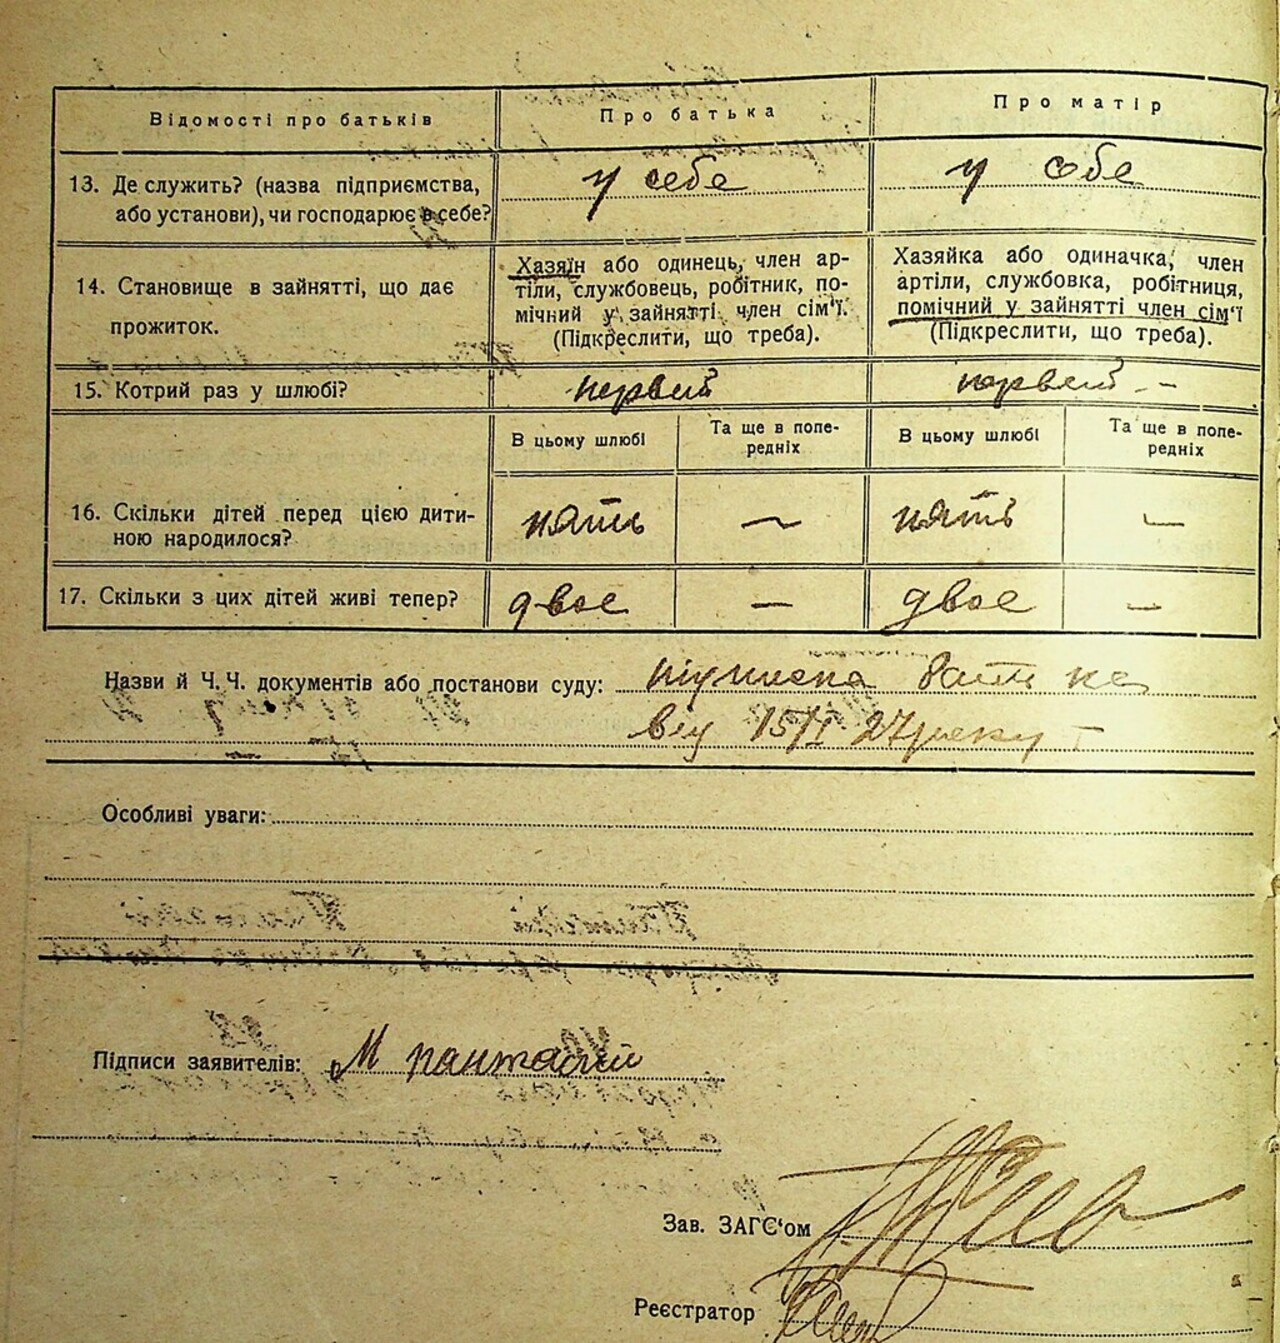 Відомості про батьків Про батька Про матір
13. Де служить? (назва підприємства, у себе у себе
або установи), чи господарює в себе?
14. Становище в зайнятті, що дає
прожиток.
Хазяїн або одинець, член ар-
тіли, службовець, робітник, по-
мічний у зайнятті член сім'ї.
(Підкреслити, що треба).
Хазяйка або одиначка, член
артіли, службовка, робітниця,
помічний у зайнятті член сім'ї
(Підкреслити, що треба).
15. Котрий раз у шлюбі? первый первый -
В цьому шлюбі Та ще в попе-
редніх В цьому шлюбі Та ще в попе-
редніх
16. Скільки дітей перед цією дити- пять — пять —
ною народилося?
17. Скільки з цих дітей живі тепер? двое — двое —
Назви й Ч. Ч. документів або постанови суду: батька
від 15/I 27 року
Особливі уваги:
Підписи заявителів: М
Зав. ЗАГС'ом
Реєстратор